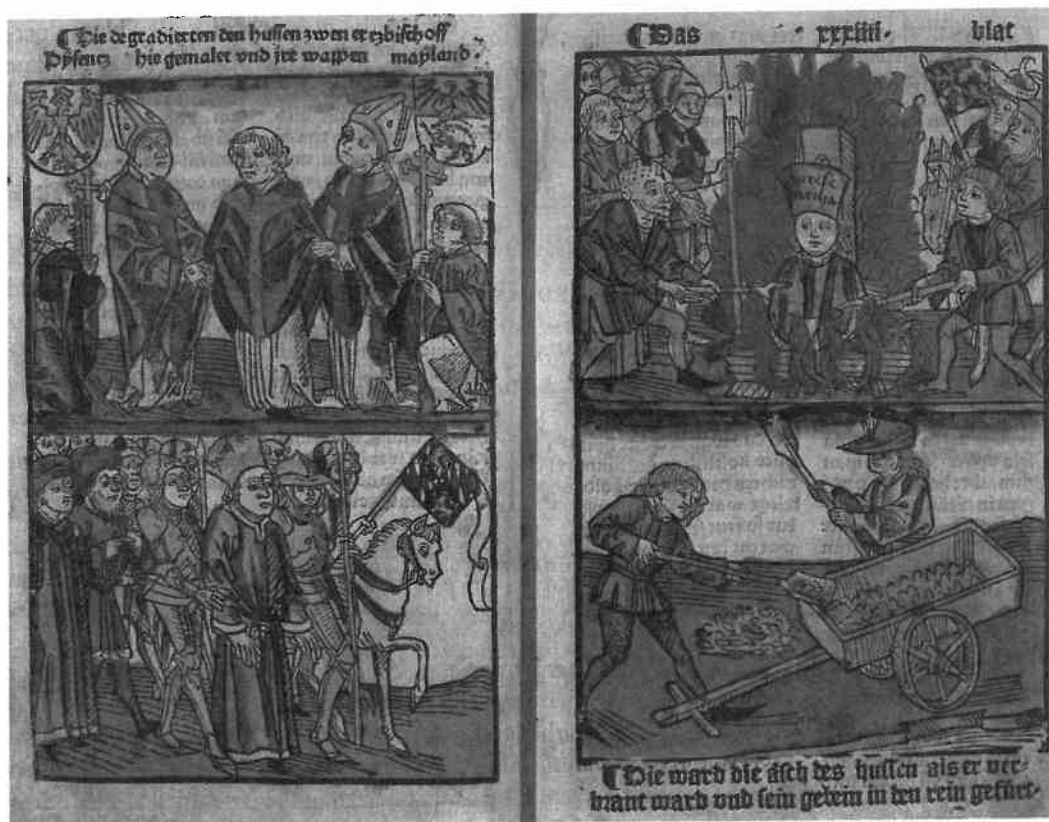 ¶ Hie degradierten den hussen zwen ertzbischoff
Pysenez hie gemalet vnd jre wappen mayland.
¶ Das xxxiiii. blat
¶ Hie ward die äsch des hussen als er ver-
brant ward vnd sein gebein in den rein gefürt.